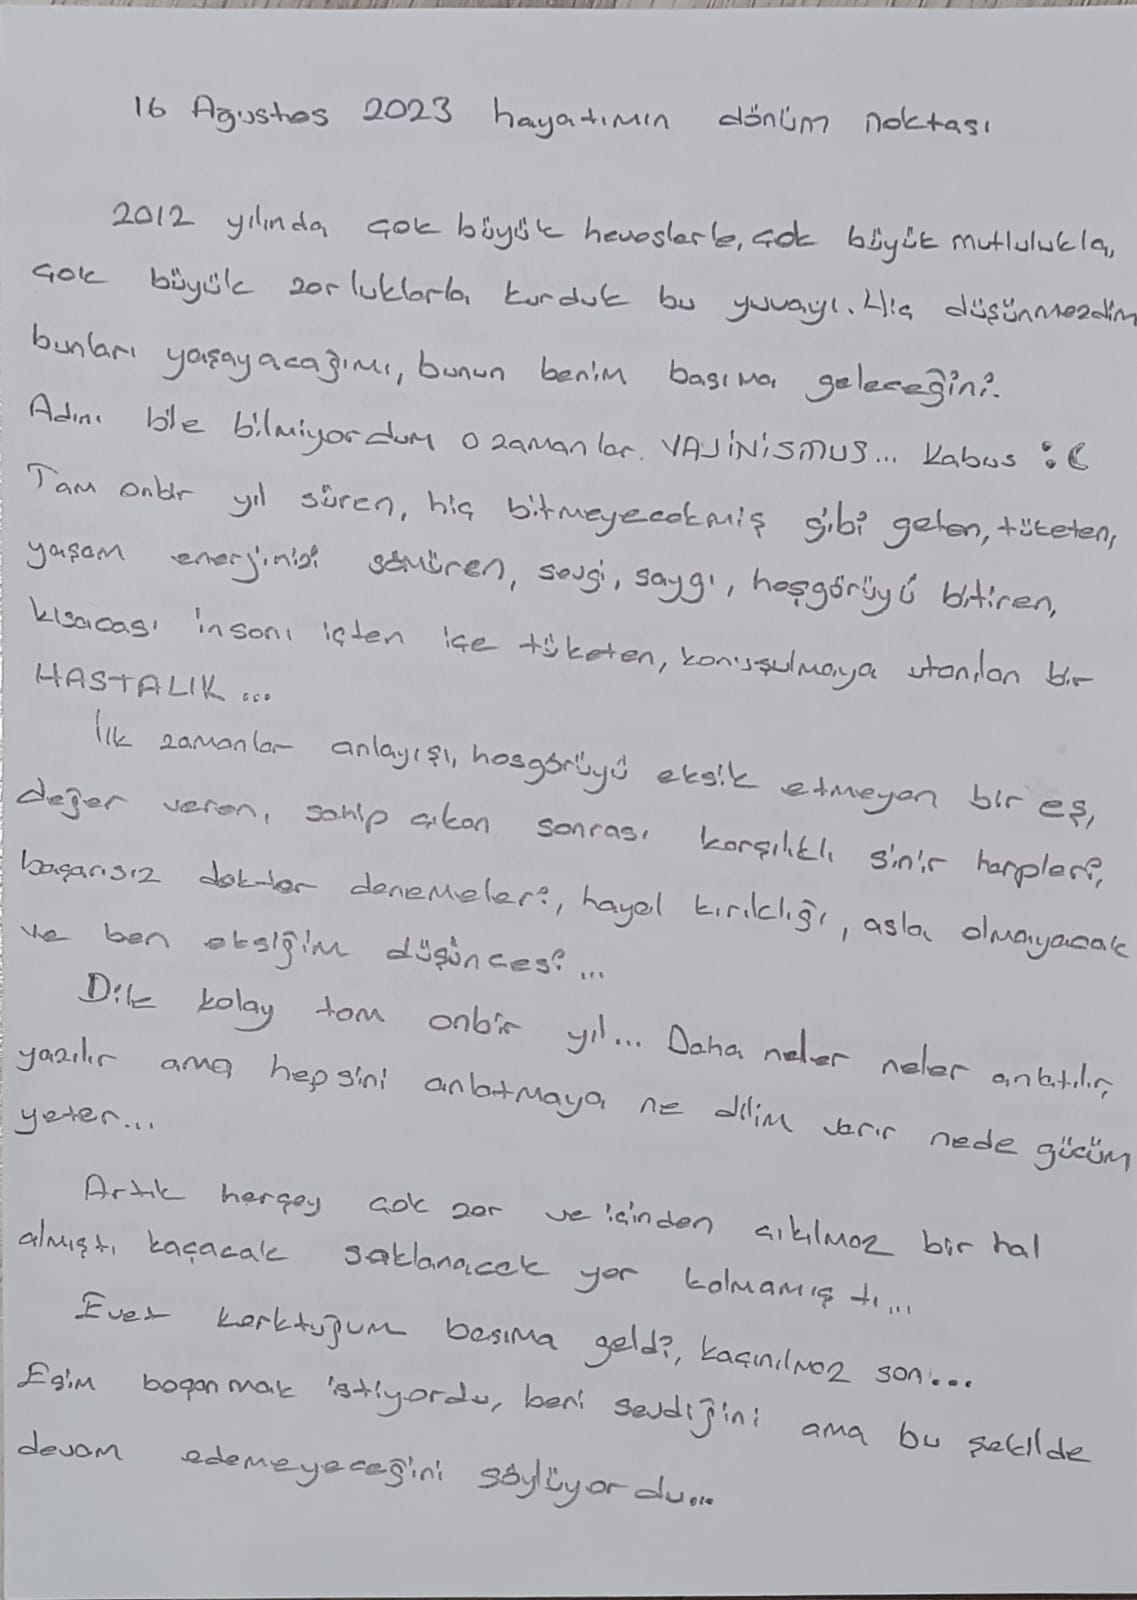 16 Ağustos 2023 hayatımın dönüm noktası
2012 yılında çok büyük heveslerle, çok büyük mutlulukla,
çok büyük zorluklarla kurduk bu yuvayı. Hiç düşünmezdim
bunları yaşayacağımı, bunun benim başıma geleceğini.
Adını bile bilmiyordum o zamanlar. VAJİNİSMUS... Kabus :(
Tam onbir yıl süren, hiç bitmeyecekmiş gibi gelen, tüketen,
yaşam enerjinizi sömüren, sevgi, saygı, hoşgörüyü bitiren,
kısacası insanı içten içe tüketen, konuşulmaya utanılan bir
HASTALIK...
İlk zamanlar anlayışı, hoşgörüyü eksik etmeyen bir eş,
değer veren, sahip çıkan sonrası karşılıklı sinir harpleri,
başarısız doktor denemeleri, hayal kırıklığı, asla olmayacak
ve ben eksiğim düşüncesi...
Dile kolay tam onbir yıl... Daha neler neler anlatılır,
yazılır ama hepsini anlatmaya ne dilim varır nede gücüm
yeter...
Artık herşey çok zor ve içinden çıkılmaz bir hal
almıştı kaçacak saklanacak yer kalmamıştı...
Evet korktuğum başıma geldi, kaçınılmaz son...
Eşim boşanmak istiyordu, beni sevdiğini ama bu şekilde
devam edemeyeceğini söylüyordu...